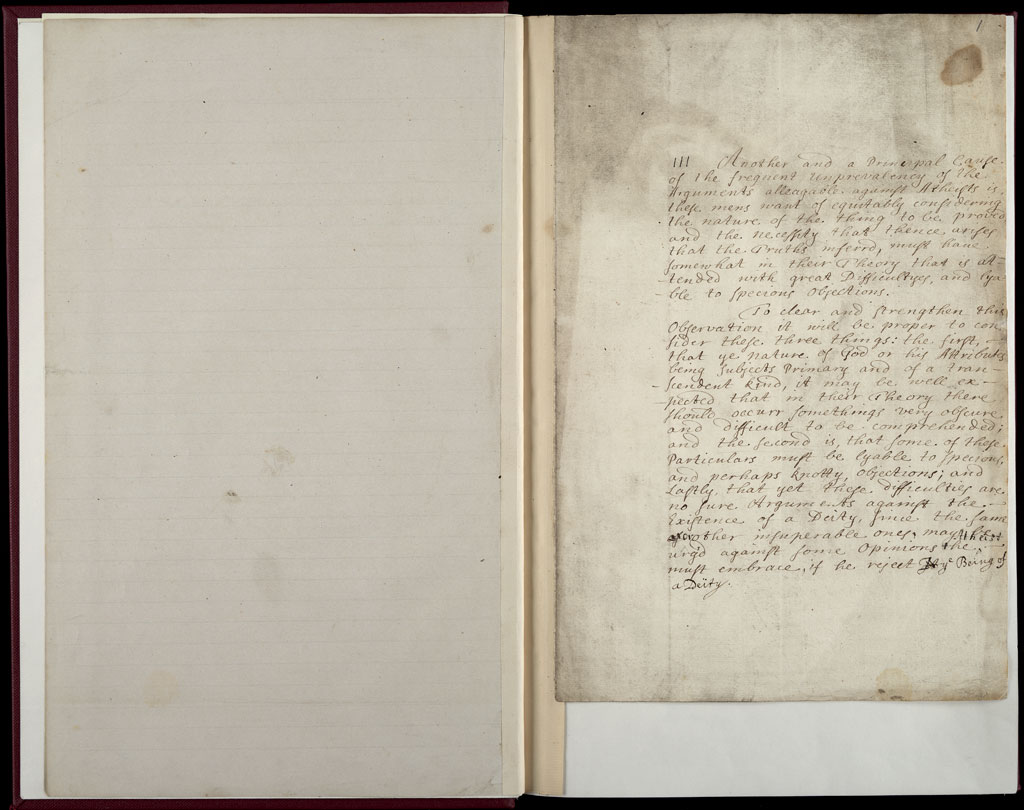 1
III Another and a Principal Cause
of the frequent unprevalency of the
Arguments alleagable against Atheists is
these mens want of equitably considering
the nature of the thing to be proved
and the necessity that thence arises
that the Truths inferrd, must have
somewhat in their Theory that is at-
-tended with great Difficultyes, and lya-
-ble to specious Objections.
To clear and strengthen this
Observation it will be proper to con
sider these three things: the first, –
that ye nature of God or his Attributs
being subjects Primary and of a tran-
-scendent kind, it may be well ex-
-pected that in their Theory there
should occurr somethings very obscure
and difficult to be comprehended;
and the second is, that some of these
Particulars must be lyable to specious,
and perhaps knotty, objections; and
Lastly, that yet these difficulties are
no sure Arguments against the
Existence of a Deity, since the same
or other insuperable ones, may
urg'd against some Opinions the
must embrace, if he reject ye Being of
a Deity.